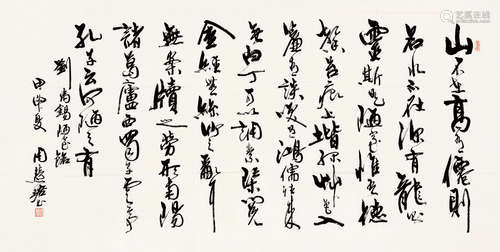 山不在高有僊則
名水不在深有龍則
靈斯是陋室惟吾德
馨苔痕上堦綠艸色入
簾青談笑有鴻儒往來
無白丁可以調素琴閱
金經無絲竹之亂耳
無案牘之勞形南陽
諸葛廬西蜀子雲亭
孔子云何陋之有
劉禹錫陋室銘
甲申夏 周慧珺